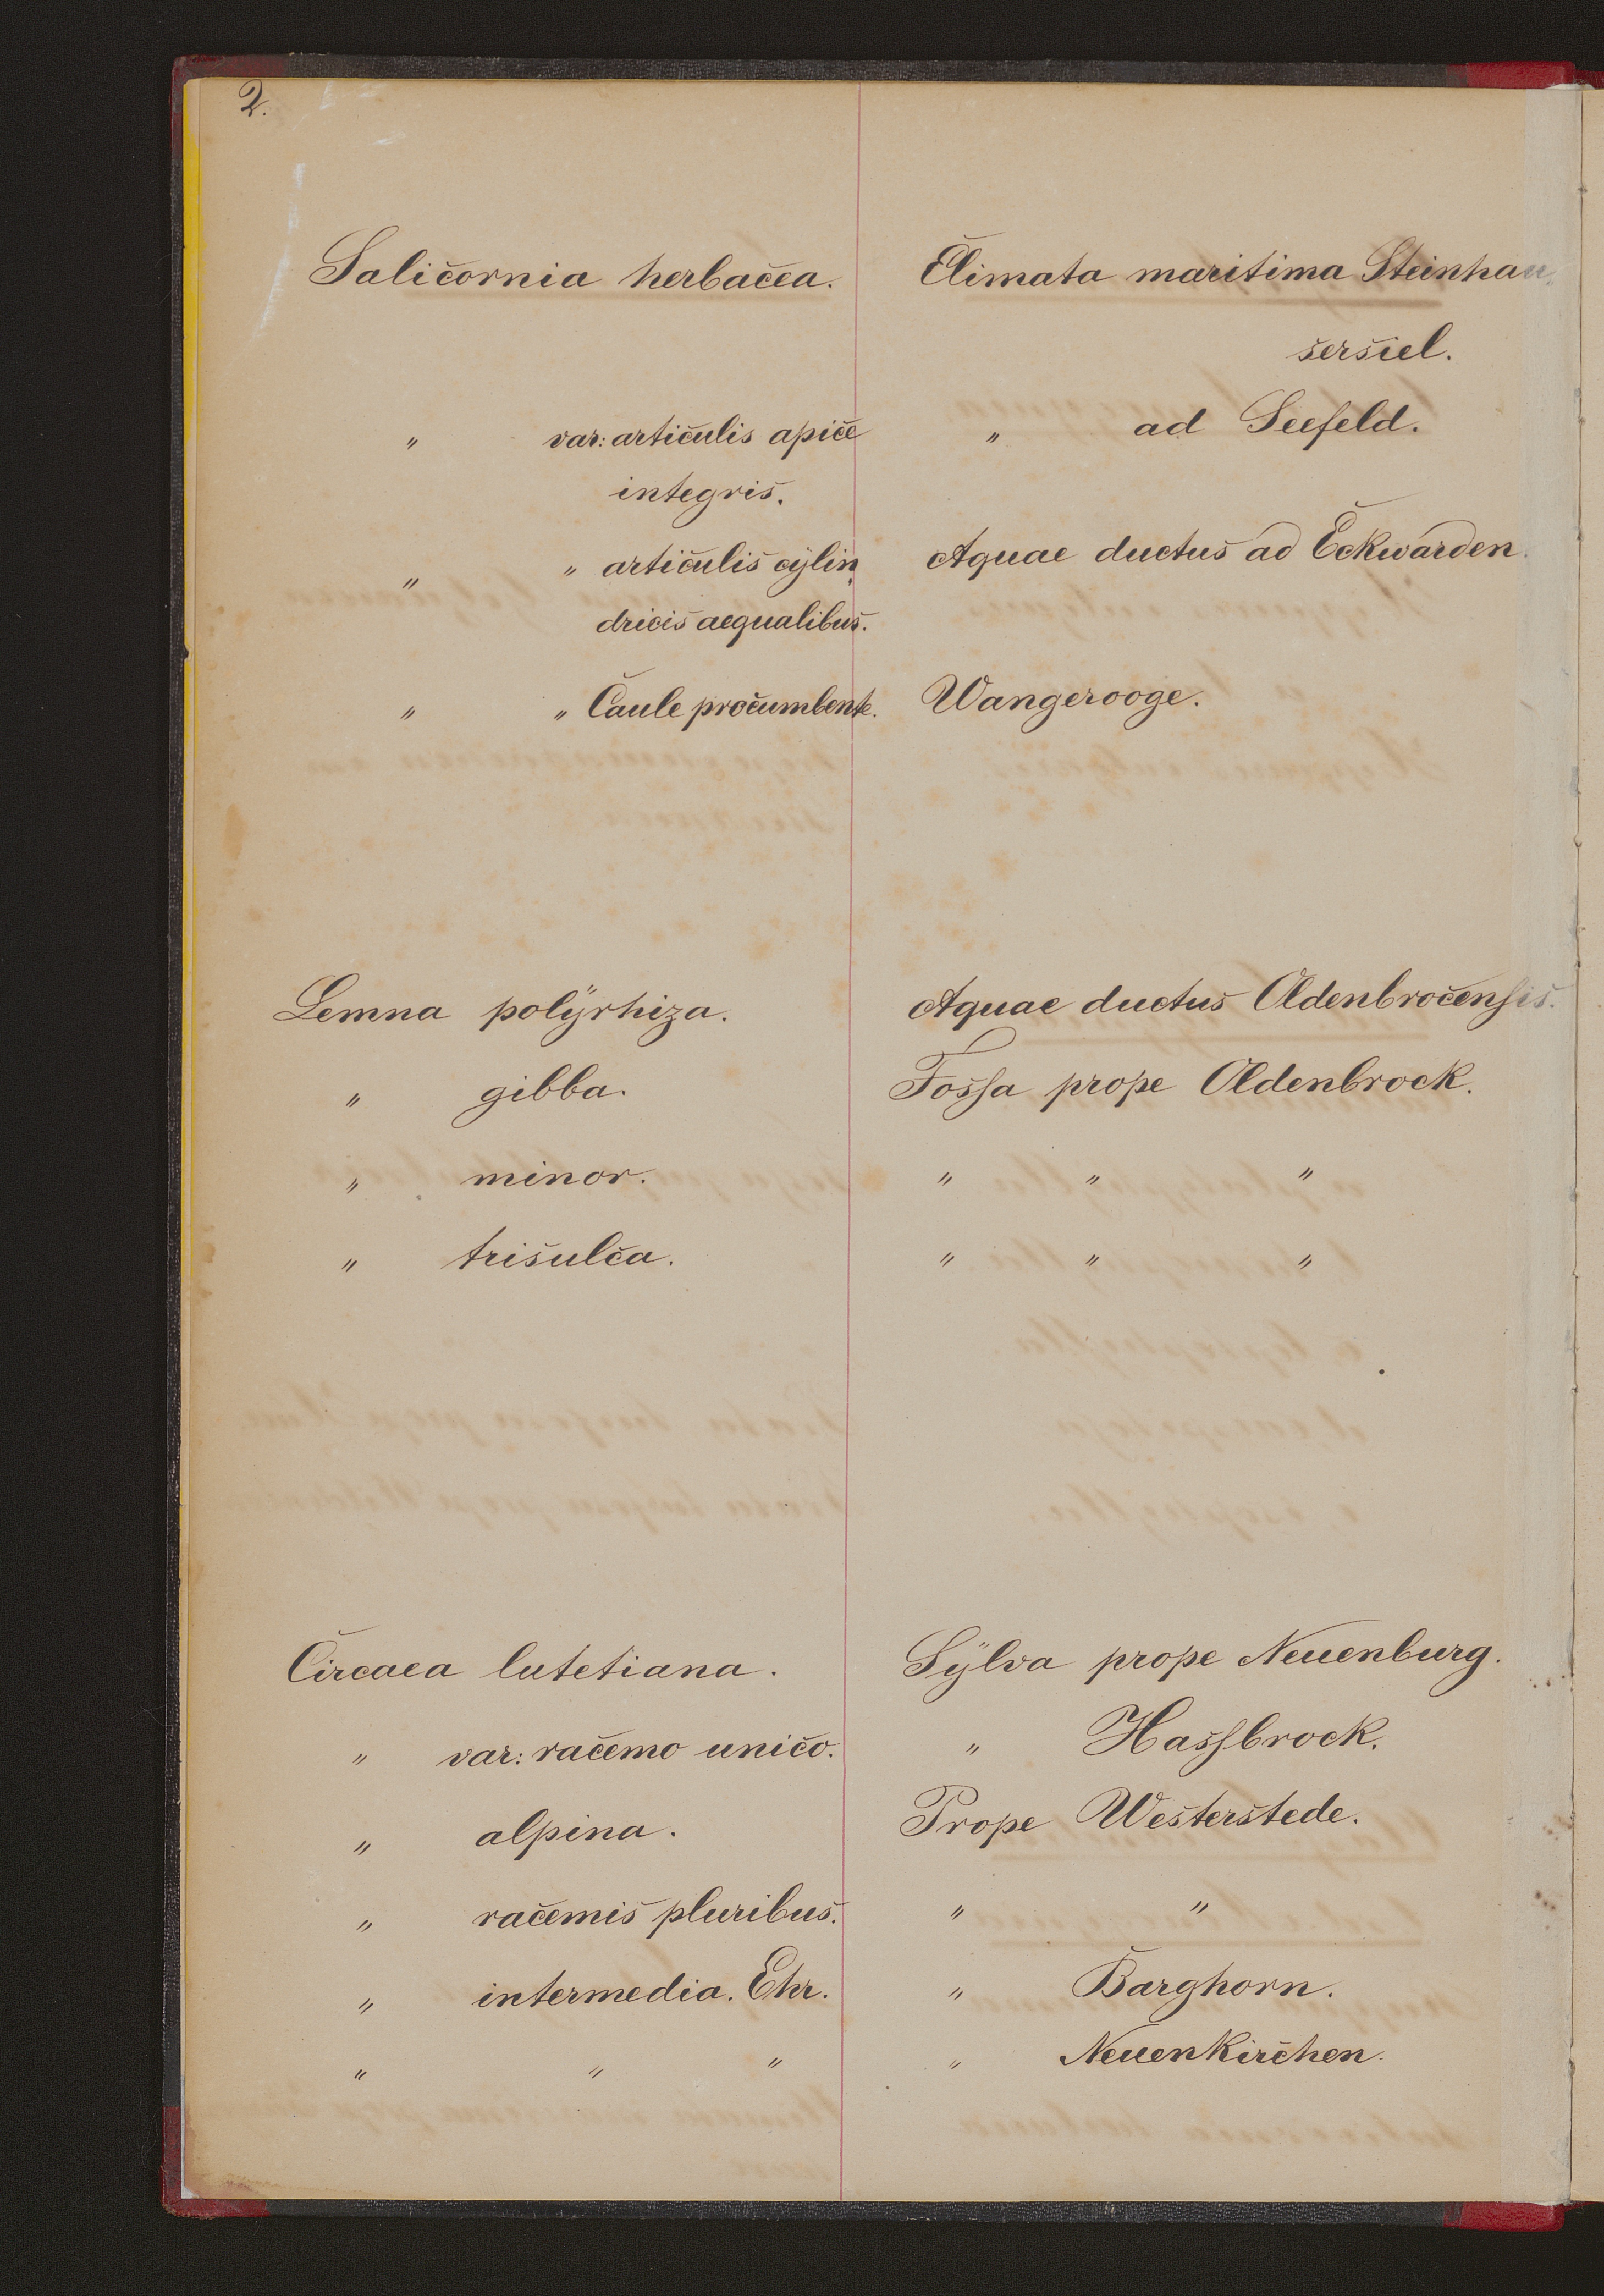 2.
Salicornia herbacea. Climata maritima Steinhau
sersiel.
" var: articulis apice " ad Seefeld.
integris.
" " articulis cÿlin Aquae ductus ad Eckwarden.
dricis aequalibus.
" " Caule procumbente. Wangerooge.
Lemna polÿrhiza. Aquae ductus Oldenbrocensis.
" gibba. Fossa prope Oldenbrock.
" minor. " " "
" trisulca. " " "
Circaea lutetiana. Sÿlva prope Neuenburg.
" var: racemo unico. " Hassbrock.
" alpina. Prope Westerstede.
" racemis pluribus. " "
" intermedia. Ehr. " Barghorn.
" " " " Neuenkirchen.